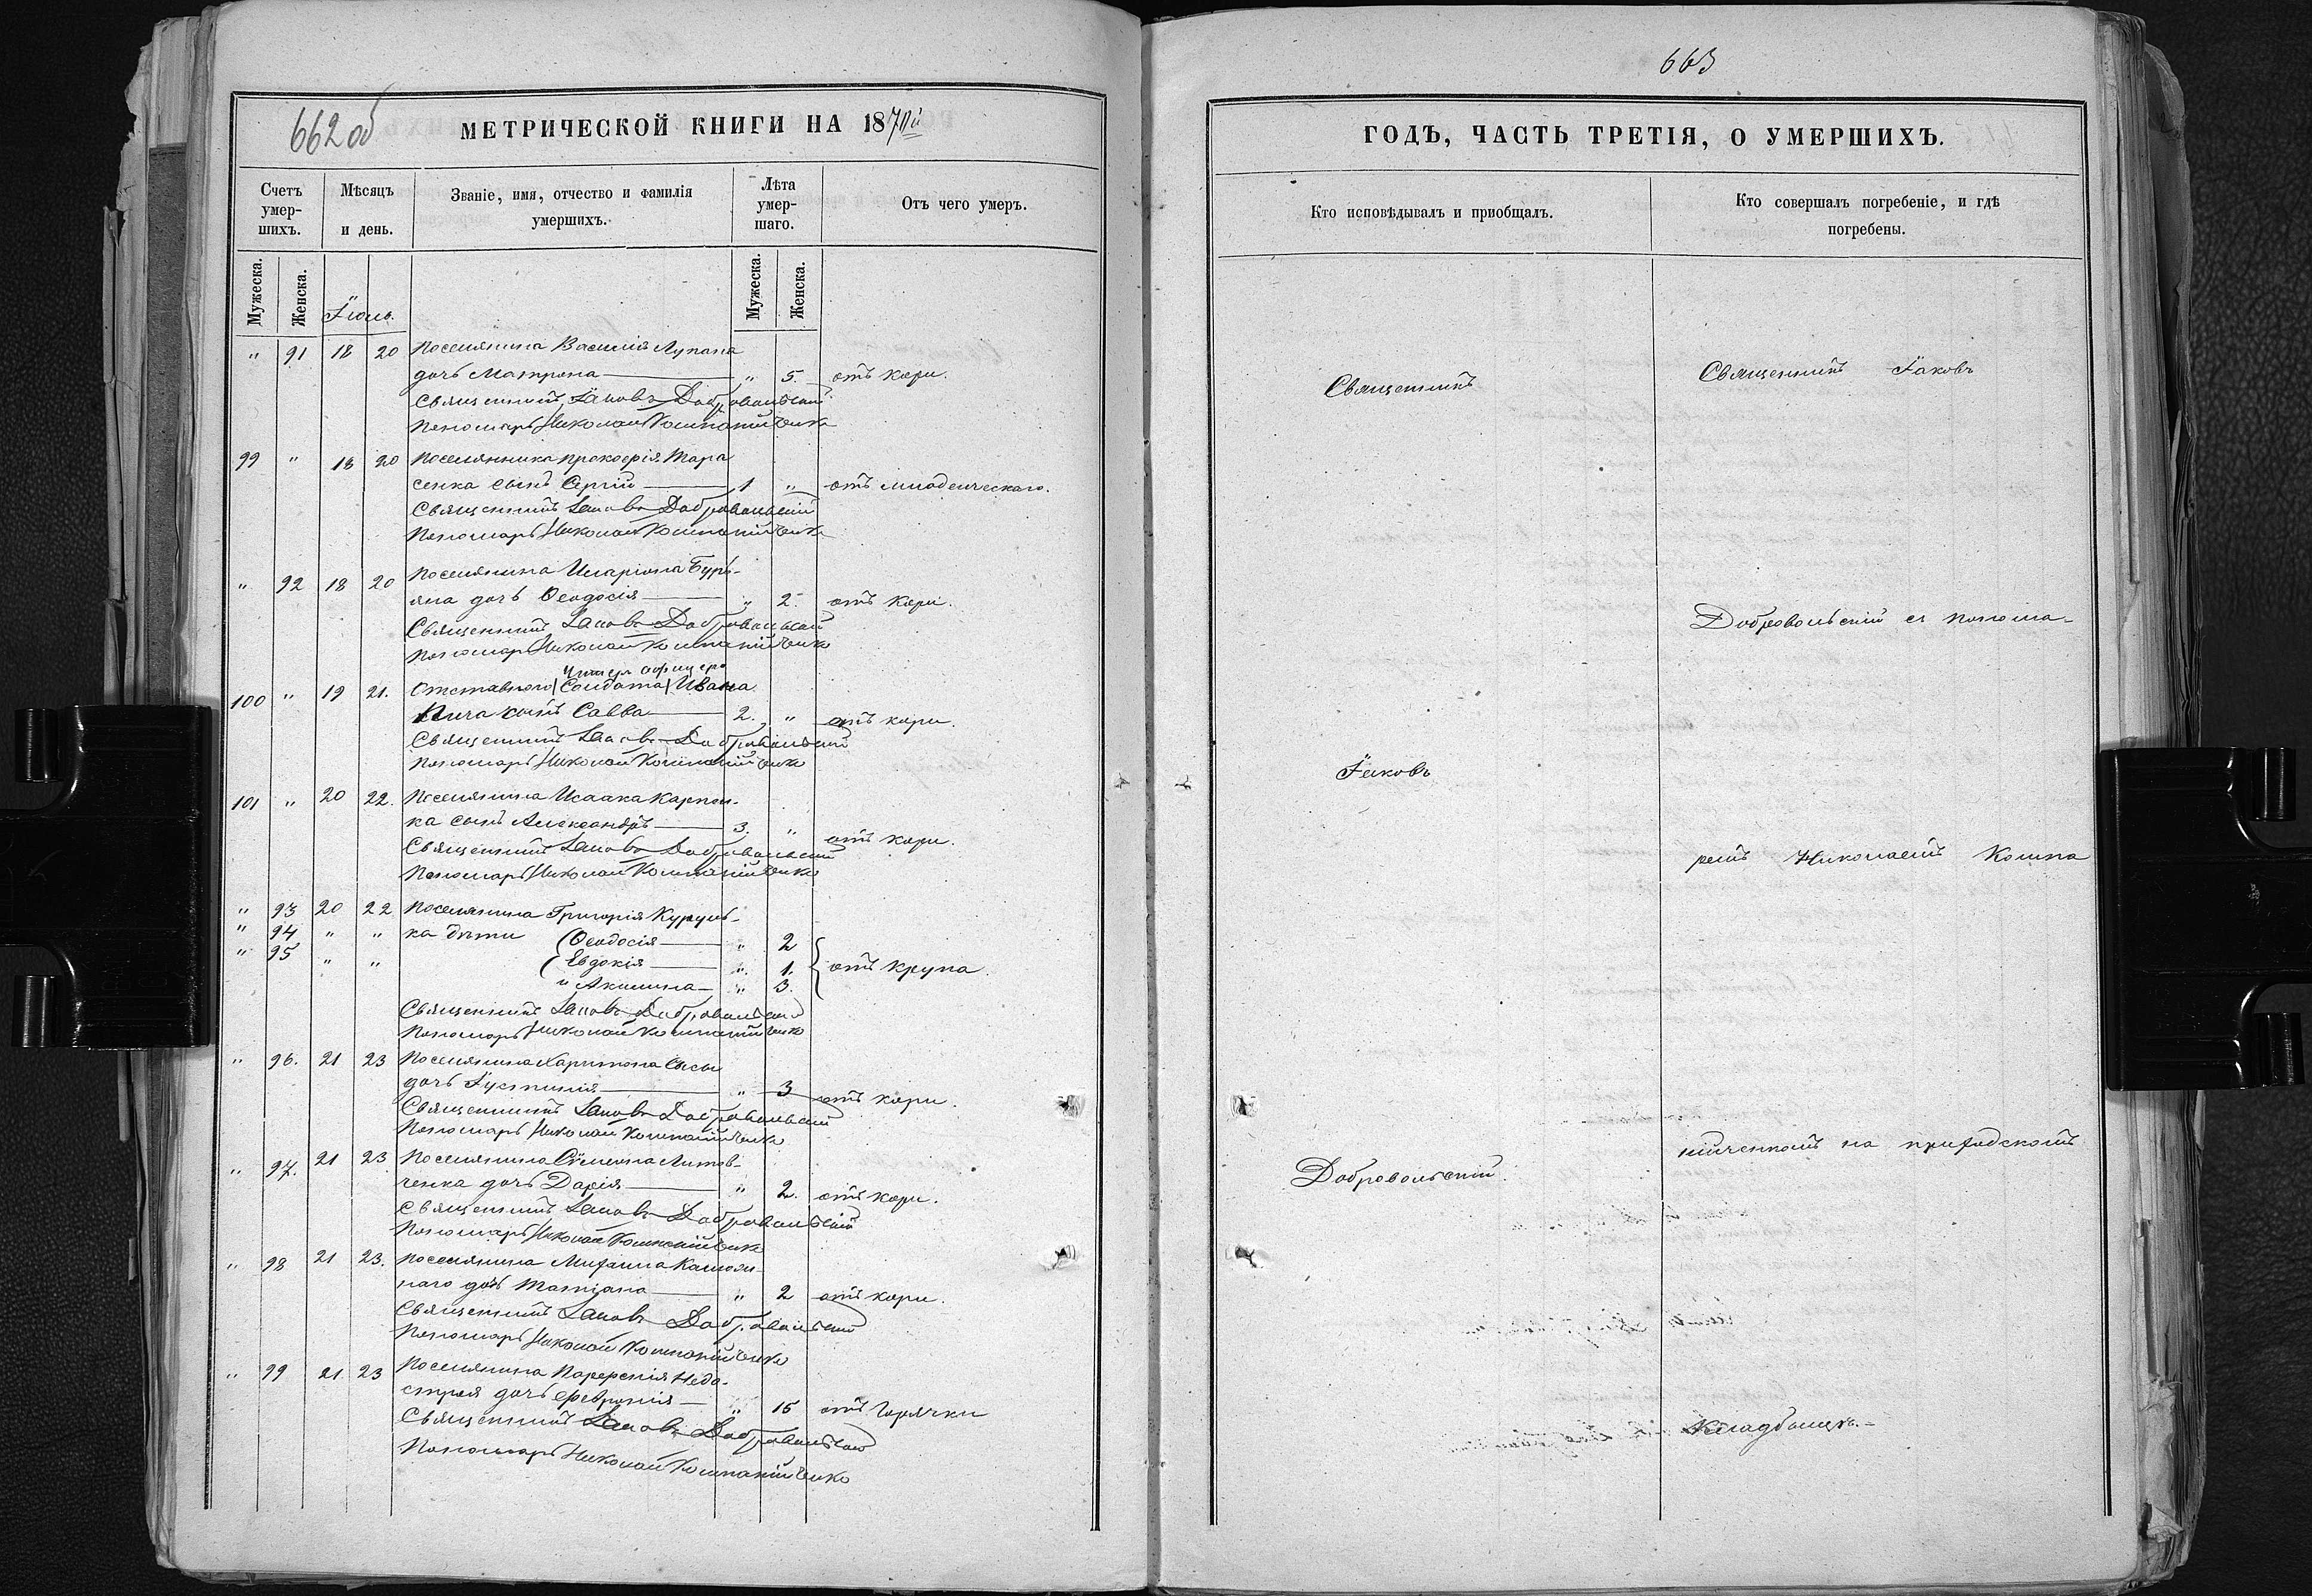 662 об
МЕТРИЧЕСКОЙ КНИГИ НА 1870й
Счетъ умер-
шихъ.
Мѣсяцъ
и день.
Званіе, имя, отчество и фамилія
умершихъ.
Лѣта
умер-
шаго.
Отъ чего умеръ.
Мужеска. Женска. Мужеска. Женска.
Іюль.
" 91 18 20 Поселянина Василія Лупана
дочь Матрона " 5. отъ кори.
Священникъ Іаковъ Добровольскій
Пономарь Николай Компанійченко
99 " 18 20 Поселянника Прокофія Тара
сенка сынъ Сергій 1 " отъ младенческаго.
Священникъ Іаковъ Добровольскій
Пономарь Николай Компанійченко
" 92 18 20 Поселянина Иларіона Бурь-
яна дочь Ѳеодосія " 2. отъ кори.
Священникъ Іаковъ Добровольскій
Пономарь Николай Компанійченко
Унтеръ офицера
100 " 19 21. Отставного Солдата Ивана
сынъ Савва 2. " отъ кори.
Священникъ Іаковъ Добровольскій
Пономарь Николай Компанійченко
101 " 20 22. Поселянина Исаака Карпен-
ка сынъ Александръ 3. " отъ кори.
Священникъ Іаковъ Добровольскій
Пономарь Николай Компанійченко
" 93 20 22 Поселянина Григорія Куруль-
" 94 " " ка дѣти Ѳеодосія " 2
" 95 " " Евдокія " 1. отъ крупа.
и Акилина " 3.
Священникъ Іаковъ Добровольскій
Пономарь Николай Компанійченко
" 96. 21 23 Поселянина Харитона Сысы
дочь Іустинія " 3 отъ кори.
Священникъ Іаковъ Добровольскій
Пономарь Николай Компанійченко
" 97. 21 23 Поселянина Сѵмеона Литов-
ченка дочь Дарія " 2. отъ кори.
Священникъ Іаковъ Добровольскій
Пономарь Николай Компанійченко
" 98 21 23. Поселянина Михаила Камян-
наго дочь Татіана " 2 отъ кори.
Священникъ Іаковъ Добровольскій
Пономарь Николай Компанійченко
" 99 21 23 Поселянина Порфирія Недо-
стрея дочь Февронія " 15 отъ горячки
Священникъ Іаковъ Добровольскій
Пономарь Николай Компанійченко
663
ГОДЪ, ЧАСТЬ ТРЕТІЯ, О УМЕРШИХЪ.
Кто исповѣдывалъ и приобщалъ.
Кто совершалъ погребеніе, и гдѣ
погребены.
Священникъ
Іаковъ
Добровольскій.
Священникъ Іаковъ
Добровольскій съ понома-
ремъ Николаемъ Компа
нійченкомъ на приходскомъ
кладбищѣ.